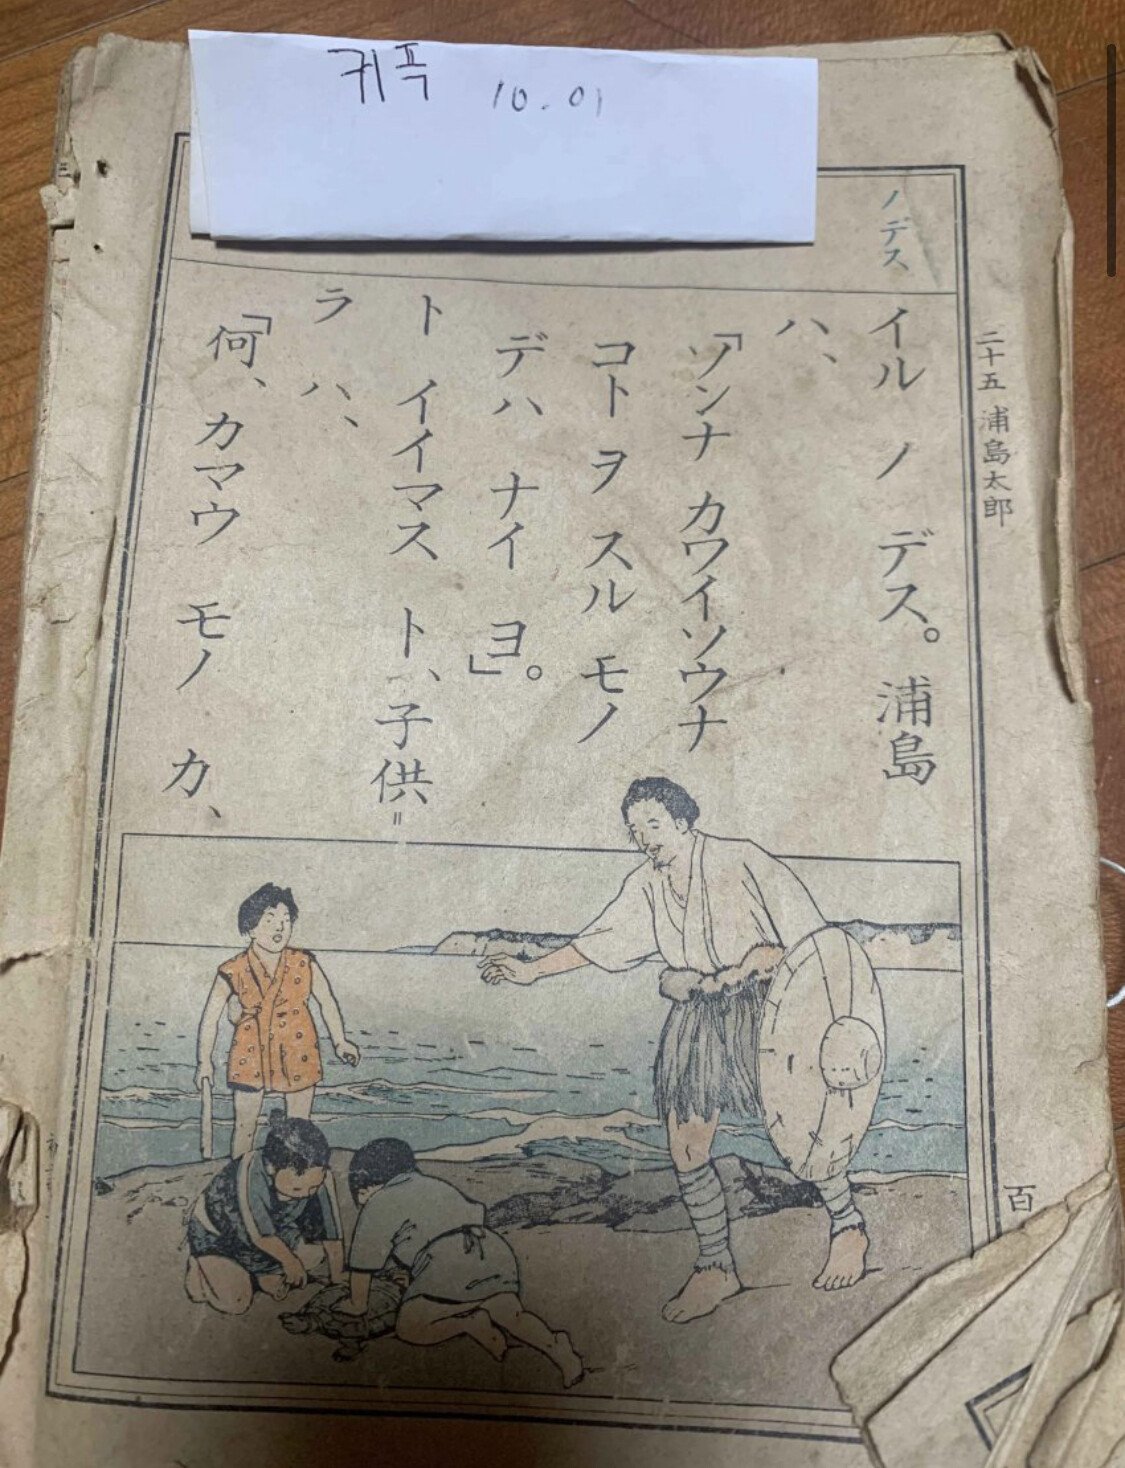 귀폭 10.01
ノデス
二十五 浦島太郎
イル ノ デス。 浦島
ハ、
「ソンナ カワイソウナ
コト ヲ スル モノ
デハ ナイ ヨ。」
ト イイマス ト、子供=
ラ ハ、
「何、カマウ モノ カ、
百